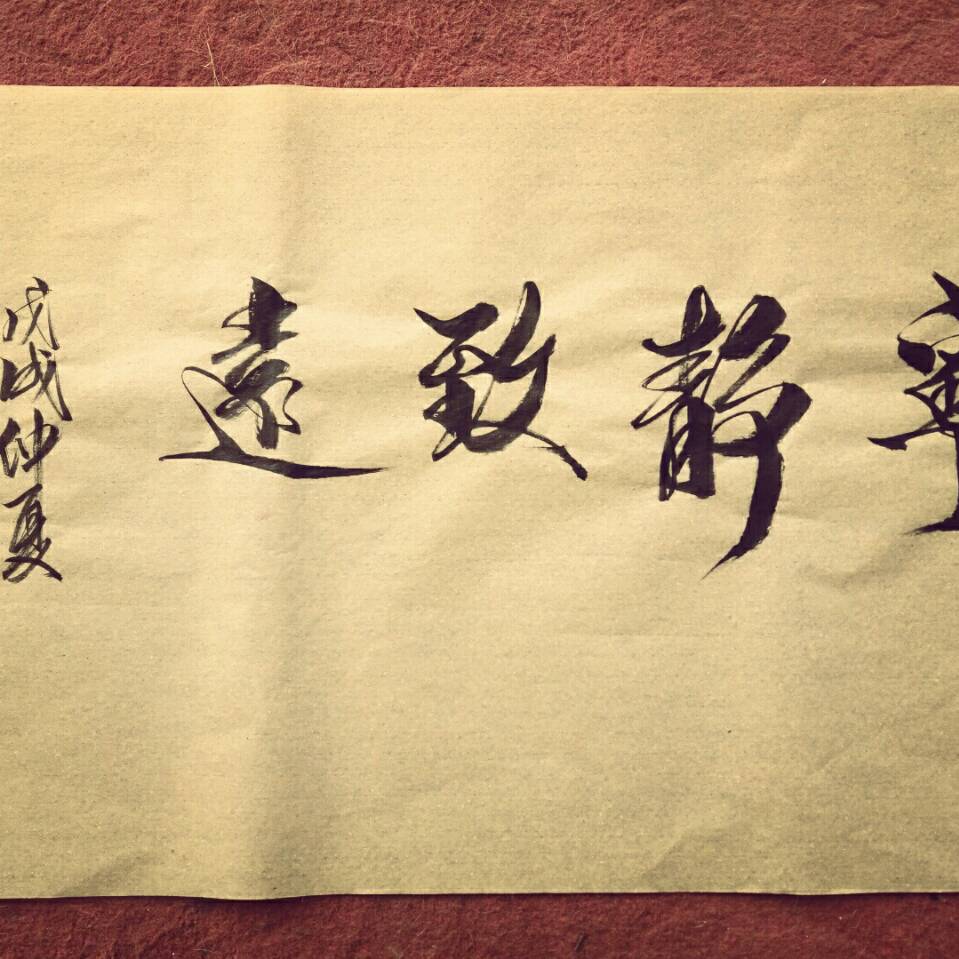 寧靜致遠
戊戌仲夏